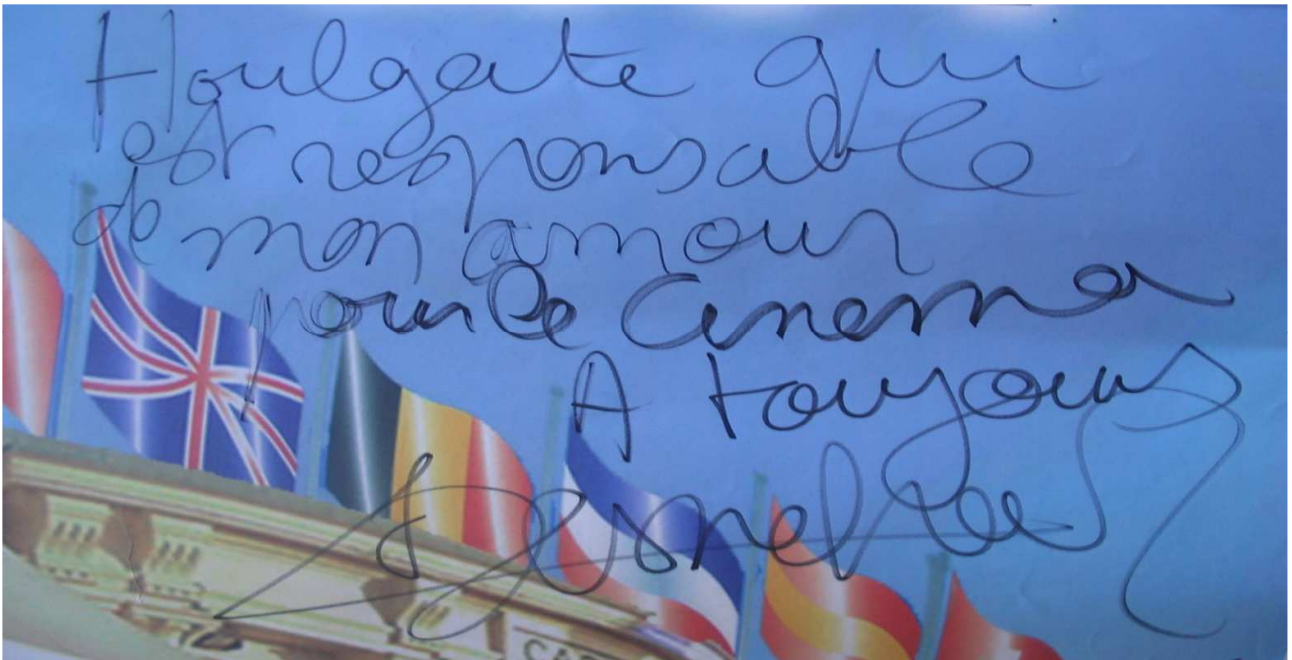 Houlgate qui
est responsable
de mon amour
pour le Cinema
A toujours